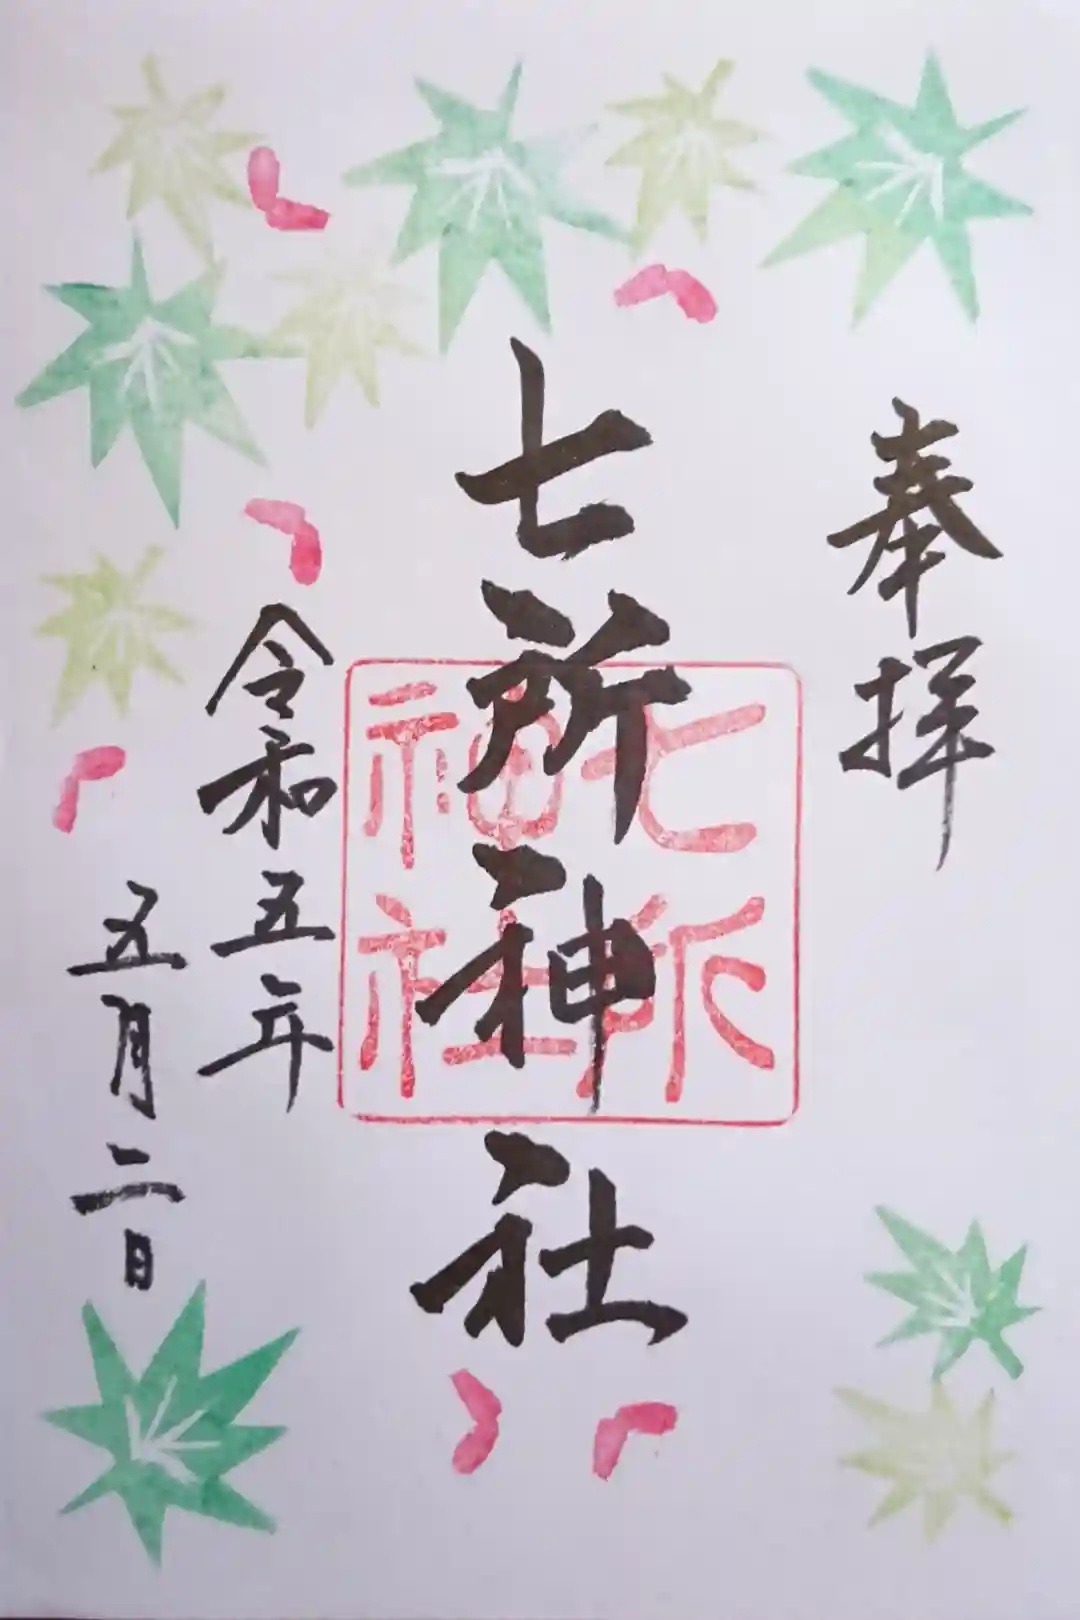 奉拝
七所神社
七所
神社
令和五年
五月二日